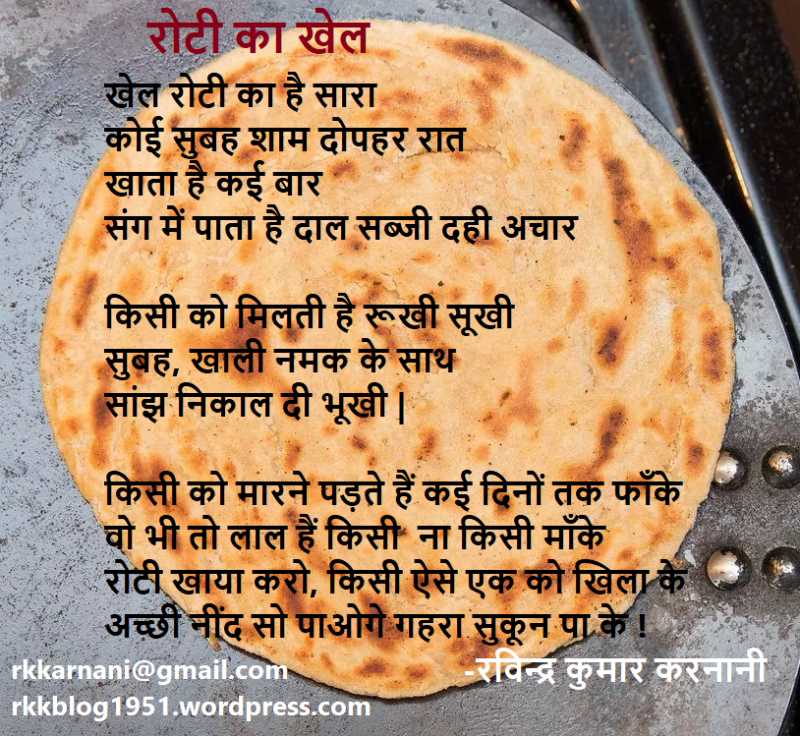 रोटी का खेल
खेल रोटी का है सारा
कोई सुबह शाम दोपहर रात
खाता है कई बार
संग में पाता है दाल सब्जी दही अचार
किसी को मिलती है रूखी सूखी
सुबह, खाली नमक के साथ
सांझ निकाल दी भूखी |
किसी को मारने पड़ते हैं कई दिनों तक फाँके
वो भी तो लाल हैं किसी ना किसी माँके
रोटी खाया करो, किसी ऐसे एक को खिला के
अच्छी नींद सो पाओगे गहरा सुकून पा के !
-रविन्द्र कुमार करनानी
rkkarnani@gmail.com
rkkblog1951.wordpress.com